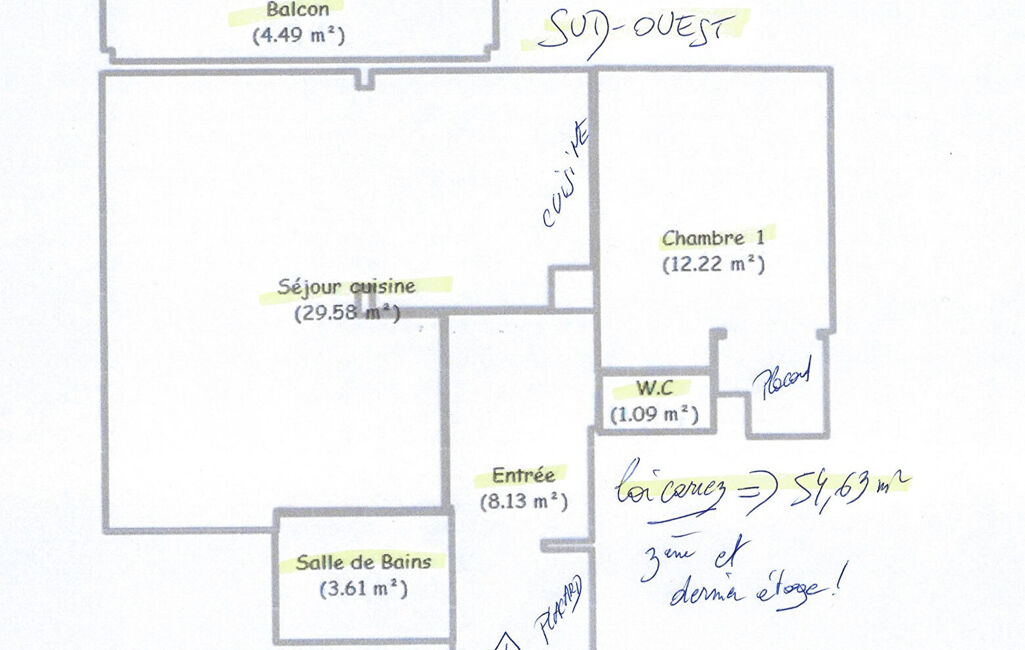 Balcon
(4.49 m²)
SUD-OUEST
CUISINE
Chambre 1
(12.22 m²)
Séjour cuisine
(29.58 m²)
Placard
W.C
(1.09 m²)
Entrée
(8.13 m²)
loi carrez => 54,63 m²
3ème et
dernier étage !
Salle de Bains
(3.61 m²)
PLACARD